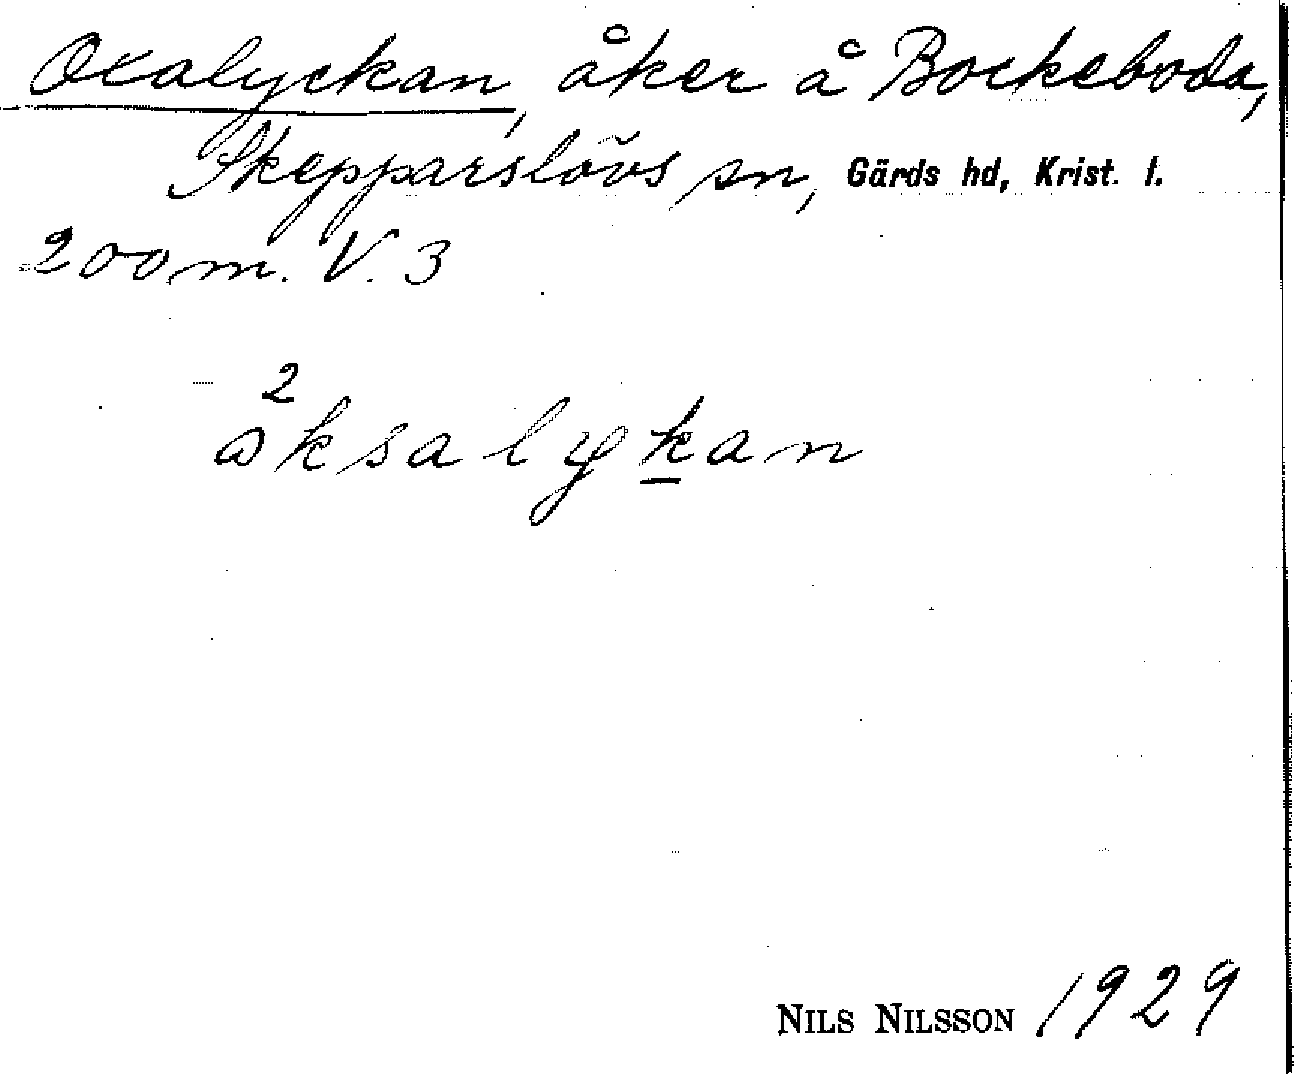 Oxalyckan, åker å Bockeboda,
Skepparslövs sn, Gärds hd, Krist. l.
200 m. V. 3
2
åksalykan
NILS NILSSON 1929